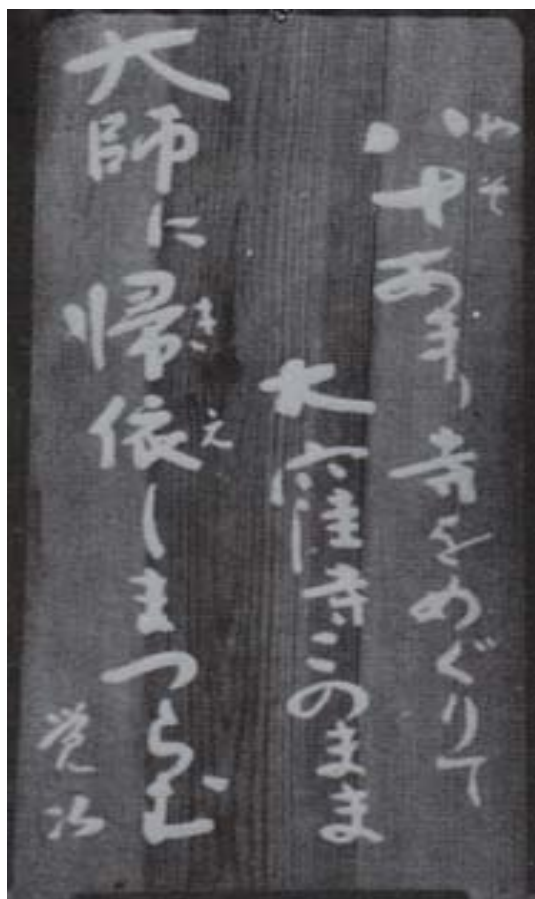 やそ
八十あまり寺をめぐりて
大窪寺このまま
きえ
大師に帰依しまつらむ